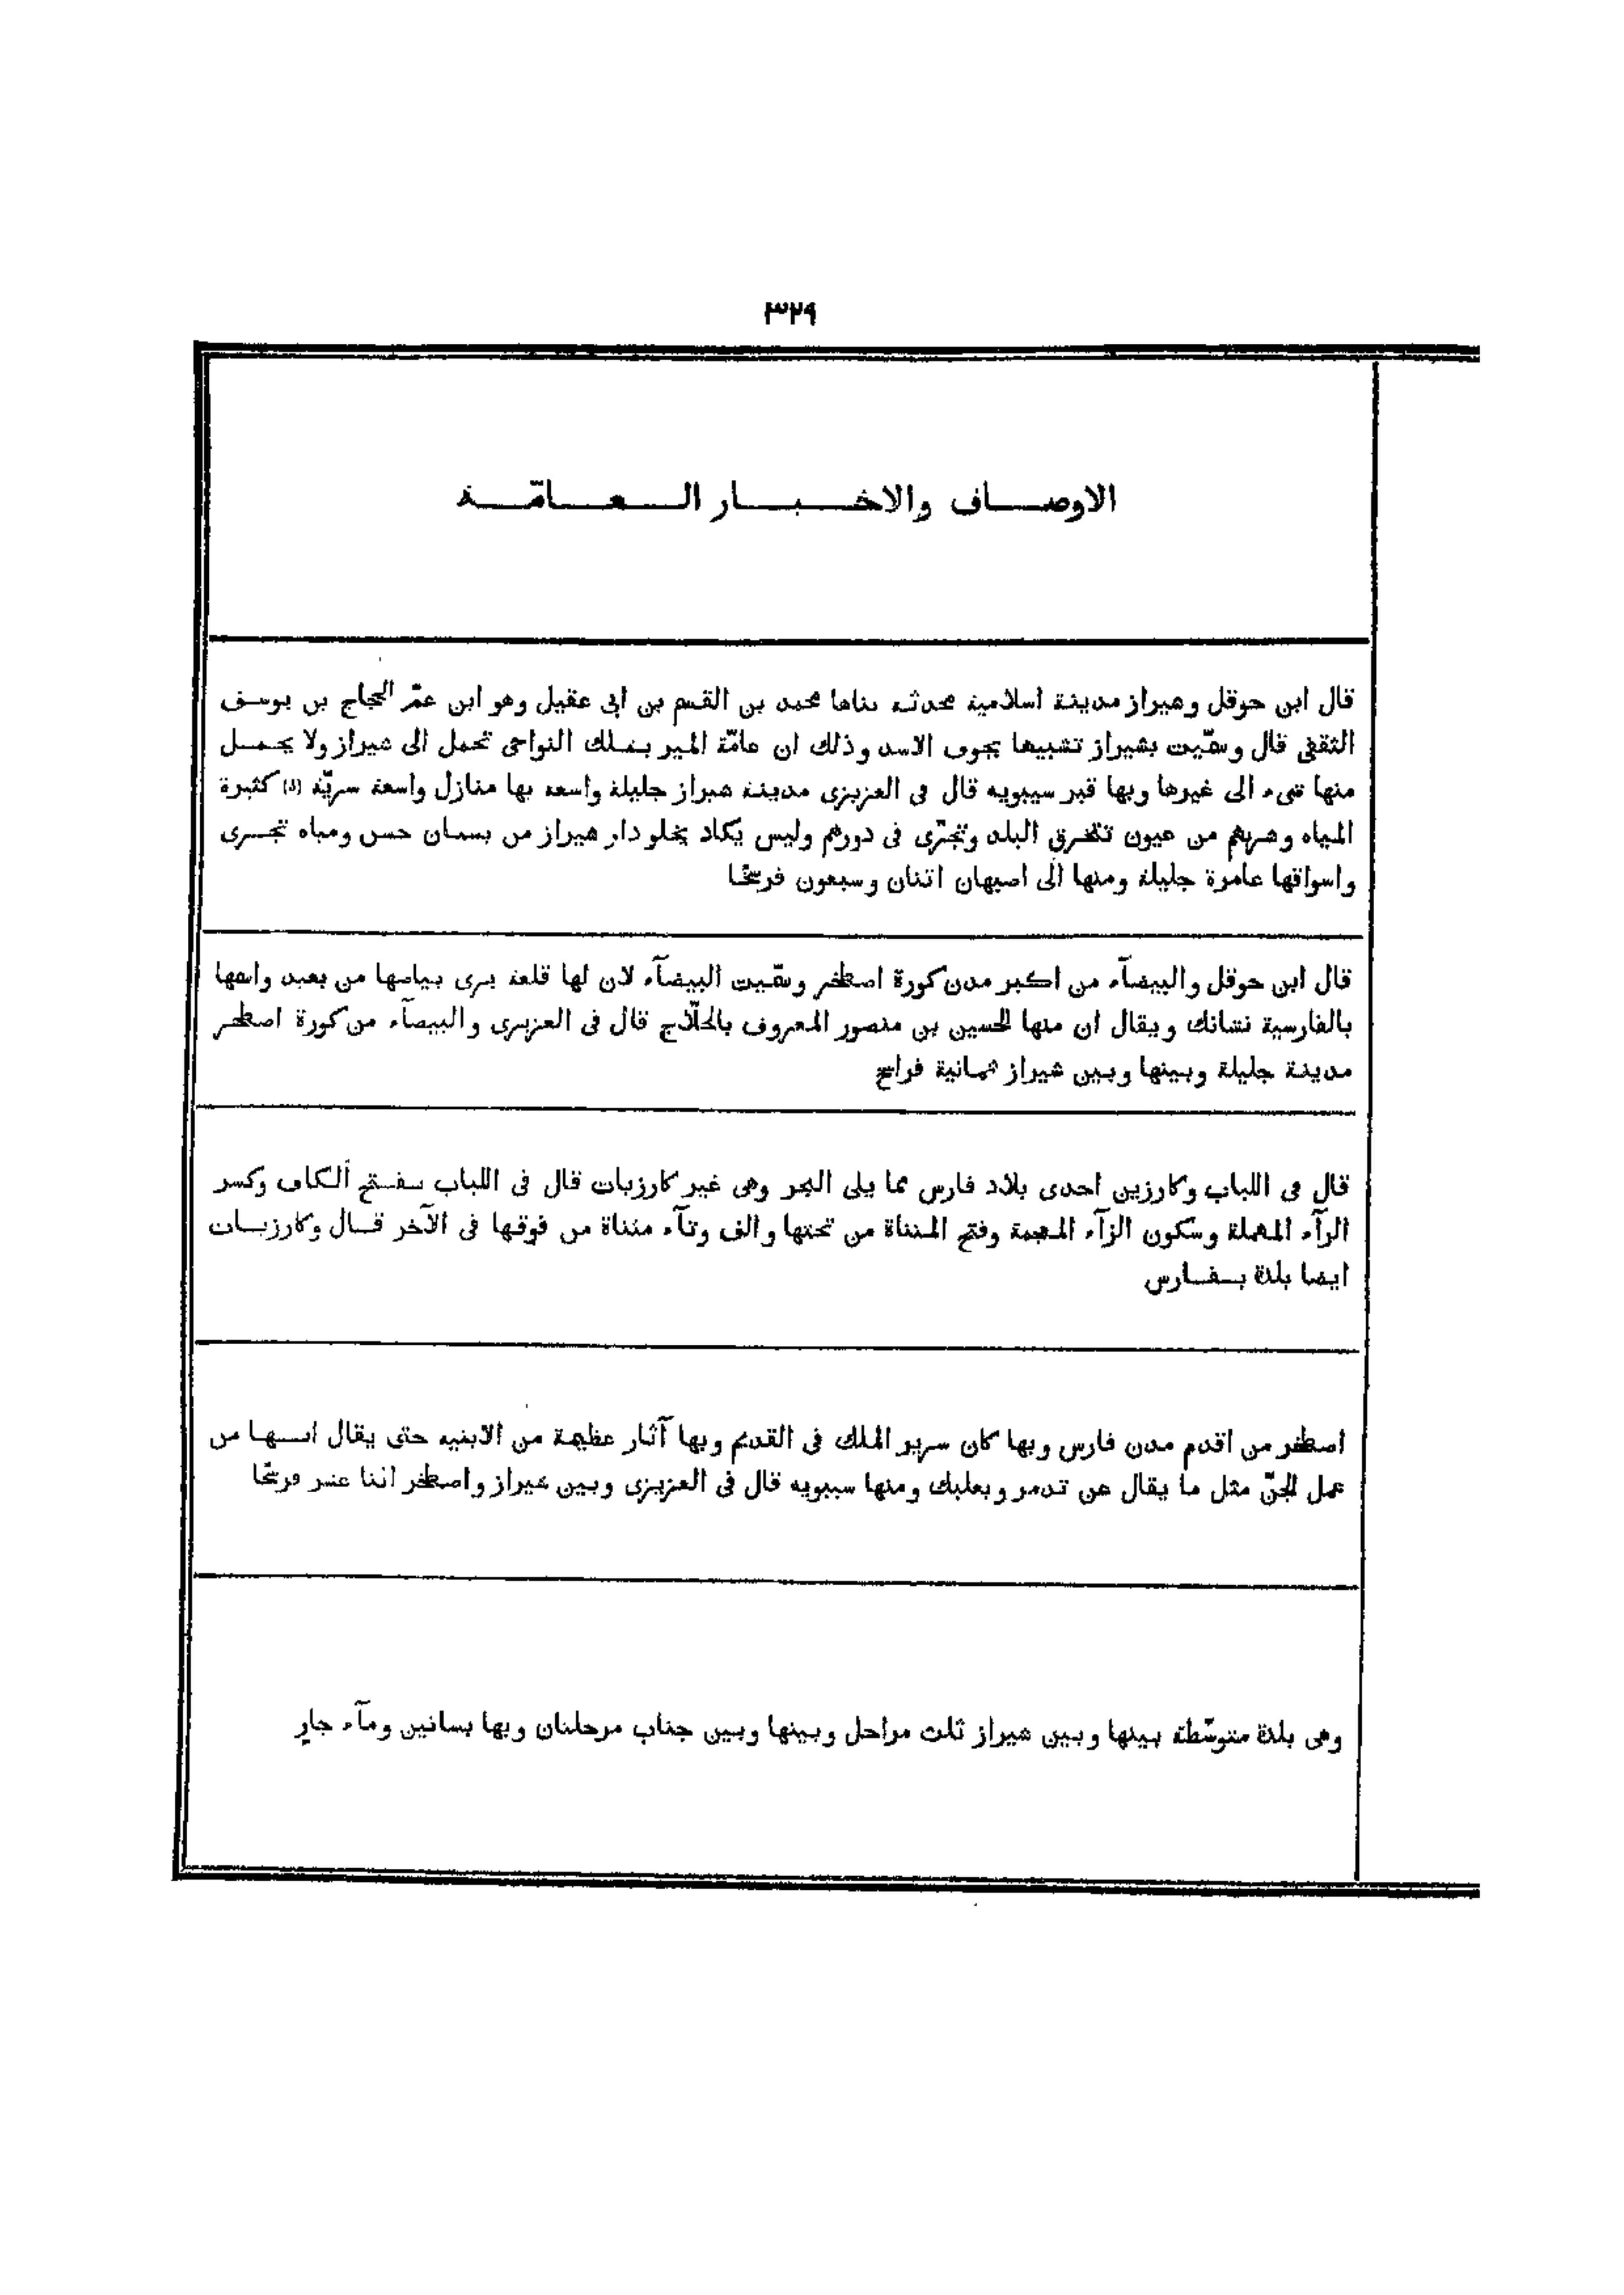 ٣٢٩
الاوصاف والاخبار العامّة
قال ابن حوقل وشيراز مدينة اسلامية محدثة بناها محمد بن القسم بن ابى عقيل وهو ابن عمّ الحجاج بن يوسف
الثقفى قال وسمّيت بشيراز تشبيها بجوف الاسد وذلك ان عامّة المير بتلك النواحى تحمل الى شيراز ولا يحمل
منها شىء الى غيرها وبها قبر سيبويه قال فى العزيزى مدينة شيراز جليلة واسعة بها منازل واسعة سريّة كثيرة
المياه وشربهم من عيون تتخرق البلد وتجرى فى دورهم وليس يكاد يخلو دار شيراز من بستان حسن ومياه تجرى
واسواقها عامرة جليلة ومنها الى اصبهان اثنان وسبعون فرسخا
قال ابن حوقل والبيضآء من اكبر مدن كورة اصطخر وسمّيت البيضآء لان لها قلعة يرى بياضها من بعيد واسمها
بالفارسية نشانك ويقال ان منها الحسين بن منصور المعروف بالحلّاج قال فى العزيزى والبيضآء من كورة اصطخر
مدينة جليلة وبينها وبين شيراز ثمانية فراسخ
قال فى اللباب وكارزين احدى بلاد فارس مما يلى البحر وهى غير كارزيات قال فى اللباب بفتح الكاف وكسر
الرآء المهملة وسكون الزآء المعجمة وفتح المثناة من تحتها والف وتآء مثناة من فوقها فى الآخر قال وكارزيات
ايضا بلدة بفارس
اصطخر من اقدم مدن فارس وبها كان سرير الملك فى القديم وبها آثار عظيمة من الابنية حتى يقال انها من
عمل الجنّ مثل ما يقال عن تدمر وبعلبك ومنها سيبويه قال فى العزيزى وبين شيراز واصطخر اثنا عشر فرسخا
وهى بلدة متوسّطة بينها وبين شيراز ثلث مراحل وبينها وبين جناب مرحلتان وبها بساتين ومآء جارٍ